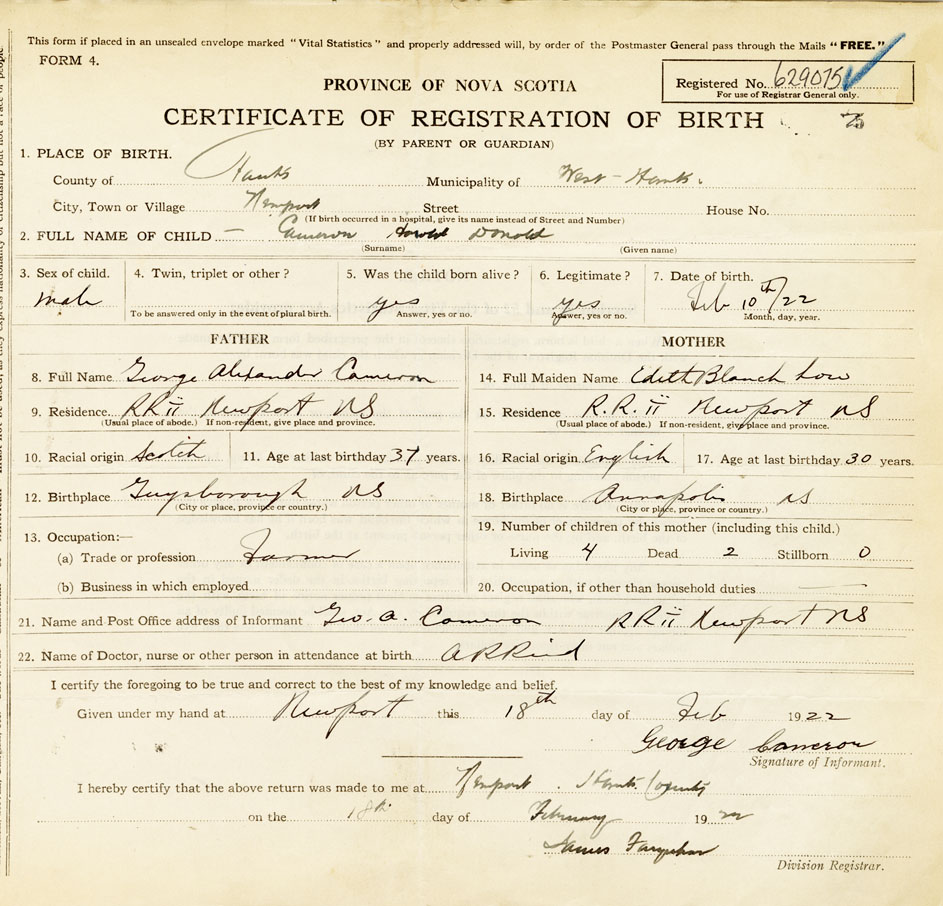 This form if placed in an unsealed envelope marked "Vital Statistics" and properly addressed will, by order of the Postmaster General pass through the Mails "FREE."
FORM 4.
PROVINCE OF NOVA SCOTIA
Registered No. 629075
For use of Registrar General only.
CERTIFICATE OF REGISTRATION OF BIRTH
(BY PARENT OR GUARDIAN)
1. PLACE OF BIRTH.
County of Hants Municipality of West-Hants.
City, Town or Village Newport Street House No.
(If birth occurred in a hospital, give its name instead of Street and Number)
2. FULL NAME OF CHILD – Cameron Harold Donald
(Surname) (Given name)
3. Sex of child. 4. Twin, triplet or other? 5. Was the child born alive? 6. Legitimate? 7. Date of birth.
male yes yes Feb 10th/22
To be answered only in the event of plural birth. Answer, yes or no. Answer, yes or no. Month, day, year.
FATHER MOTHER
8. Full Name George Alexander Cameron 14. Full Maiden Name Edith Blanch Low
9. Residence. RR ii Newport NS 15. Residence R.R. ii Newport NS
(Usual place of abode.) If non-resident, give place and province. (Usual place of abode.) If non-resident, give place and province.
10. Racial origin Scotch 11. Age at last birthday 37 years. 16. Racial origin English 17. Age at last birthday 30 years.
12. Birthplace Guysborough NS 18. Birthplace Annapolis NS
(City or place, province or country.) (City or place, province or country.)
13. Occupation:— 19. Number of children of this mother (including this child.)
(a) Trade or profession Farmer Living 4 Dead 2 Stillborn 0
(b) Business in which employed 20. Occupation, if other than household duties —
21. Name and Post Office address of Informant Geo. A. Cameron RR ii Newport NS
22. Name of Doctor, nurse or other person in attendance at birth A R Reid
I certify the foregoing to be true and correct to the best of my knowledge and belief.
Given under my hand at Newport this 18th day of Feb 1922
George Cameron
Signature of Informant.
I hereby certify that the above return was made to me at Newport Hants County
on the 18th day of February 1922
James Farquhar
Division Registrar.